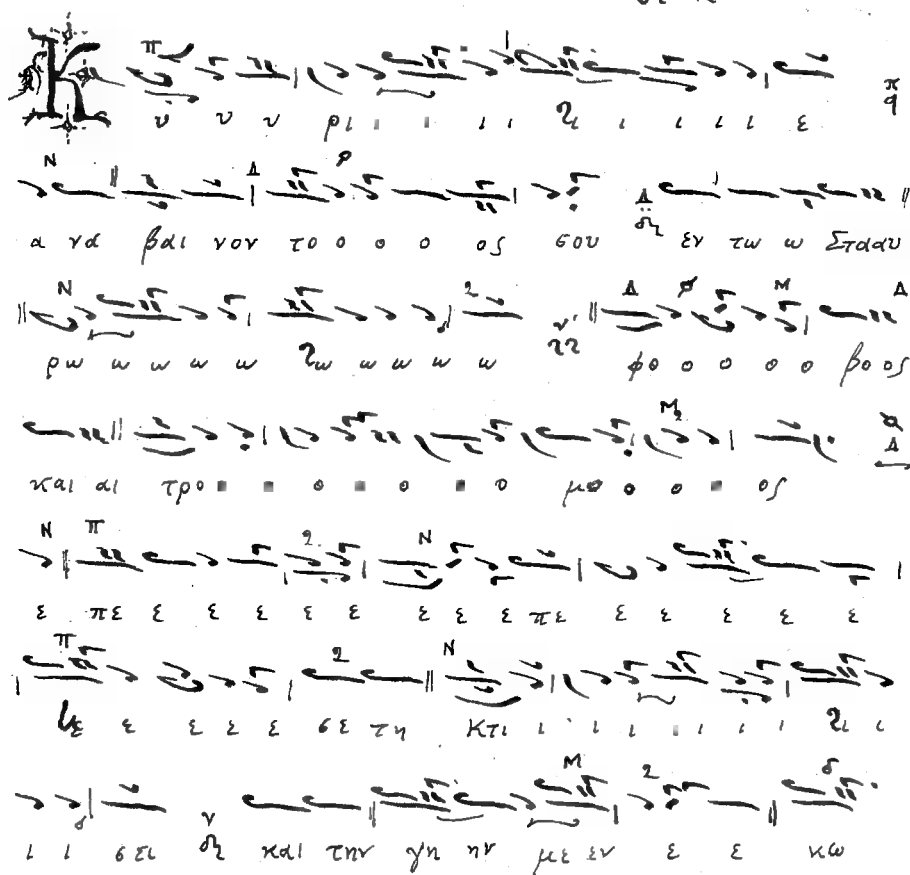 Κ υ υ υ ρι ι ι ι ι ι ι ι ι ι ε
α να βαι νον το ο ο ο ος σου εν τω ω Στααυ
ρω ω ω ω ω ω ω ω ω ω φο ο ο ο ο βο ος
και αι τρο ο ο ο ο ο ο μο ο ο ο ος
ε πε ε ε ε ε ε ε ε ε πε ε ε ε ε ε
ε ε ε ε ε σε τη κτι ι ι ι ι ι ι ι ι ι
ι ι σει και την γη ην με εν ε ε κω